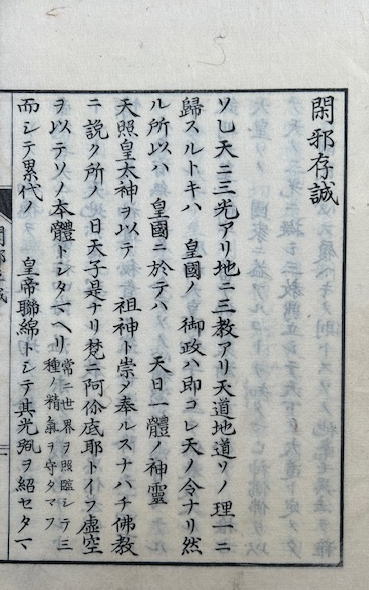 閑邪存誠
ソレ天ニ三光アリ地ニ三教アリ天道地道ソノ理一ニ
歸スルトキハ 皇國ノ 御政ハ即コレ天ノ令ナリ然
ル所以ハ 皇國ニ於テハ 天日一體ノ神靈
天照皇太神ヲ以テ 祖神ト崇メ奉ルスナハチ佛教
ニ説ク所ノ日天子是ナリ梵ニ阿你底耶トイフ虛空
ヲ以テソノ本體トシタマヘリ
常ニ世界ヲ照臨シテ三
種ノ精氣ヲ守タマフ
而シテ累代ノ 皇帝聯綿トシテ其光烈ヲ紹セタマ